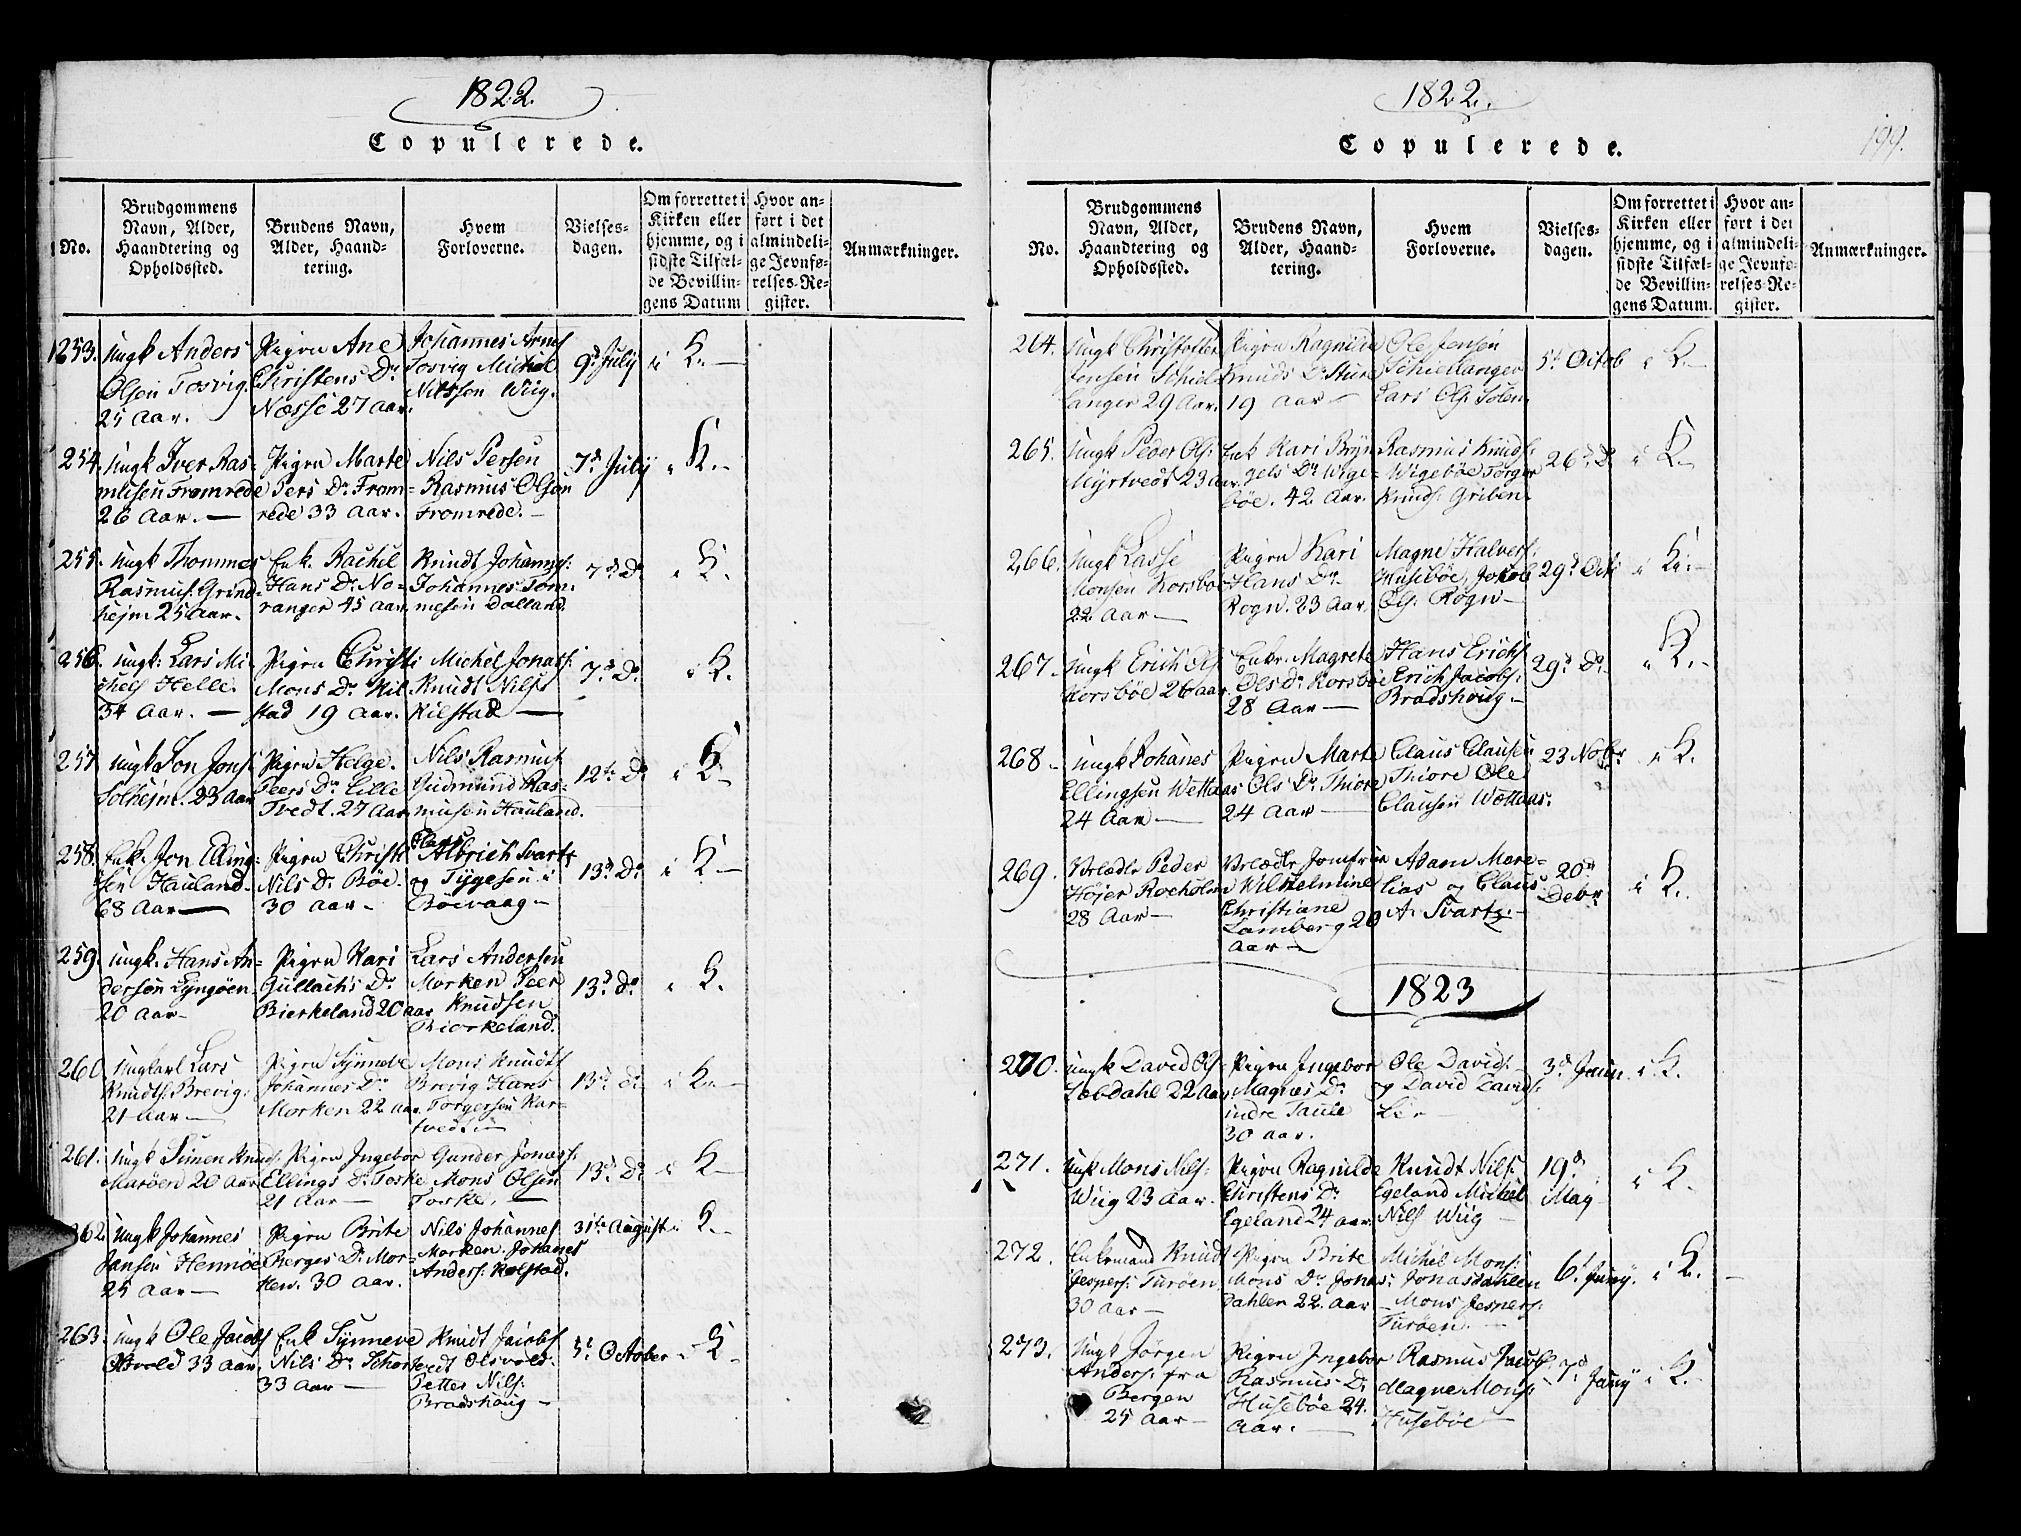 1822.
Copulerede.
No.
Brudgommens
Navn, Alder,
Haandtering og
Opholdssted.
Brudens Navn,
Alder, Haand-
tering.
Hvem
Forloverne.
Vielses-
dagen.
Om forrettet i
Kirken eller
hjemme, og i
sidste Tilfæl-
de Bevillin-
gens Datum
Hvor an-
ført i det
almindeli-
ge Jevnfø-
relses-Re-
gister.
Anmærkninger.
253. Ungk Anders
Olsen Tosvig.
25 Aar.
Pigen Ane
Christens Dr
Næsse 27 aar.
Johannes Arnes
Tosvig Michel
Nilssen Wiig.
9d July
i K.
254. Ungk Iver Ras-
musen Fromrede
26 Aar.
Pigen Marte
Pers Dr From-
rede 33 Aar.
Nils Persen
Rasmus Olsen
Fromrede.
7d July
i K.
255. Ungk Thommes
Rasmus: Grind-
hejm 25 Aar.
Enk. Rachel
Hans Dr No-
ranger 45 aar
Knudt Johannes:
Johannes Tom-
mesen Dalland.
7d Do
i K.
256. Ungk: Lars Mi-
chels Helle.
34 Aar.
Pigen Christi
Mons Dr Kil
stad 19 Aar.
Michel Jonass:
Knudt Nilss
Kilstad
7d Do
i K.
257 Ungk Jon Jons
Solhejm. 23 Aar
Pigen Helge.
Peers Dr Lille
Tvedt. 27 Aar.
Nils Rasmus
Gudmund Ras-
musen Hauland.
12te Do
i K.
258. Enk. Jon Elling-
sen Hauland.
68 Aar
Pigen Christi
Nils Dr Böe.
30 Aar
Claus
Albrich Svartz
og Tygesen i
Böevaag
13d Do
i K
259. Ungk. Hans An-
dersen Lyngöen
20 Aar
Pigen Kari
Gullachs Dr
Bierkeland 20 aar
Lars Andersen
Morken Peer
Knudsen
Biorkeland.
13d Do
i K.
260 Ungkarl Lars
Knudts: Brevig.
21 Aar
Pigen Synneve
Johannes Dr
Morken 22 aar
Mons Knudts
Brevig Hans
Torgersen Kar-
tvedt
13d do
i K.
261. Ungk Simen Knuds:
Maröen 20 Aar
Pigen Ingebor
Ellings Dr Torske
21 Aar
Gunder Jonass:
Mons Olsen
Torske.
13d Do
i K
262. Ungk Johannes
Jansen Hennöe
25 Aar
Pigen Brite
Berges Dr Mor-
ken. 30 Aar.
Nils Johannes
Morken Johanes
Anders: Kolstad.
31te August
i K.
263. Ungk Ole Jacobs
33 Aar.
Enk Synneve
Nils Dr
33 Aar
Knudt Jacobs
Petter Nils:
Bradshoug
5t October
i K
1822.
Copulerede.
199.
No.
Brudgommens
Navn, Alder,
Haandtering og
Opholdssted.
Brudens Navn,
Alder, Haand-
tering.
Hvem
Forloverne.
Vielses-
dagen.
Om forrettet i
Kirken eller
hjemme, og i
sidste Tilfæl-
de Bevillin-
gens Datum.
Hvor an-
ført i det
almindeli-
ge Jevnfø-
relses-Re-
gister.
Anmærkninger.
264. Ungk Christoffer
Jensen Schiel-
langer 29 Aar.
Pigen Ragnilde
Knuds Dr Sture
19 Aar
Ole Jensen
Schiellanger
Lars Ols:
5t Octob
i K.
265. Ungk Peder Ols:
Myrtvedt 23 Aar.
Enk Kari Bryn
gels Dr Wige-
böe. 42 Aar.
Rasmus Knuds:
Wigeböe Torger
Knuds: Griben.
26d D
i K.
266. Ungk Lasse
Monsen Korsböe
22 Aar
Pigen Kari
Hans Dr
Rogn. 23 Aar.
Magne Halvors:
Huseböe, Jokob
Ols: Rogn
29d Oct
i K.
267. Ungk Erich Ols
Korsböe 26 aar.
Enke. Magrete
Ols Dr Korsböe
28 Aar
Hans Erichs
Erich Jacobs:
Bradshoug
29d Do
i K.
268. Ungk Johanes
Ellingsen Wettaas
24 Aar
Pigen Marte
Ols Dr Thiore
24 Aar
Claus Clausen
Thiore Ole
Clausen Wættaas.
23 Nobr
i K.
269. Velædle Peder
Höjer Rocholm
28 Aar
Velædle Jomfrue
Wilhelmine
Christiane
Lamberg 20
Aar
Adam More-
lias og Claus
A. Svartz.
20d
Debr
i K.
1823
270. Ungk David Ols
22 Aar
Pigen Ingebor
Magnes Dr
indre Taule
30 Aar.
Ole Davids.
og David Davids:
Lie
3d Janu.
i K.
271. Ungk Mons Nils:
Wiig 23 Aar.
Pigen Ragnilde
Christens Dr
Egeland 24 aar.
Knudt Nils:
Egeland Michel
Nils Wiig
19d
May
i K.
272. Enkemand Knudt
Jespers: Turöen
30 Aar
Pigen Brite
Mons Dr Jonas-
dahlen 22. aar
Michel Mons:
Jonasdahlen
Mons Jespers:
Turöen.
6t Juny.
i K.
273. Ungk Jörgen
Anders: fra
Bergen
25 Aar
Pigen Ingebor
Rasmus Dr
Huseböe 24.
Aar.
Rasmus Jacobs:
Magne Mons:
Huseböe
7d Juny
i K.